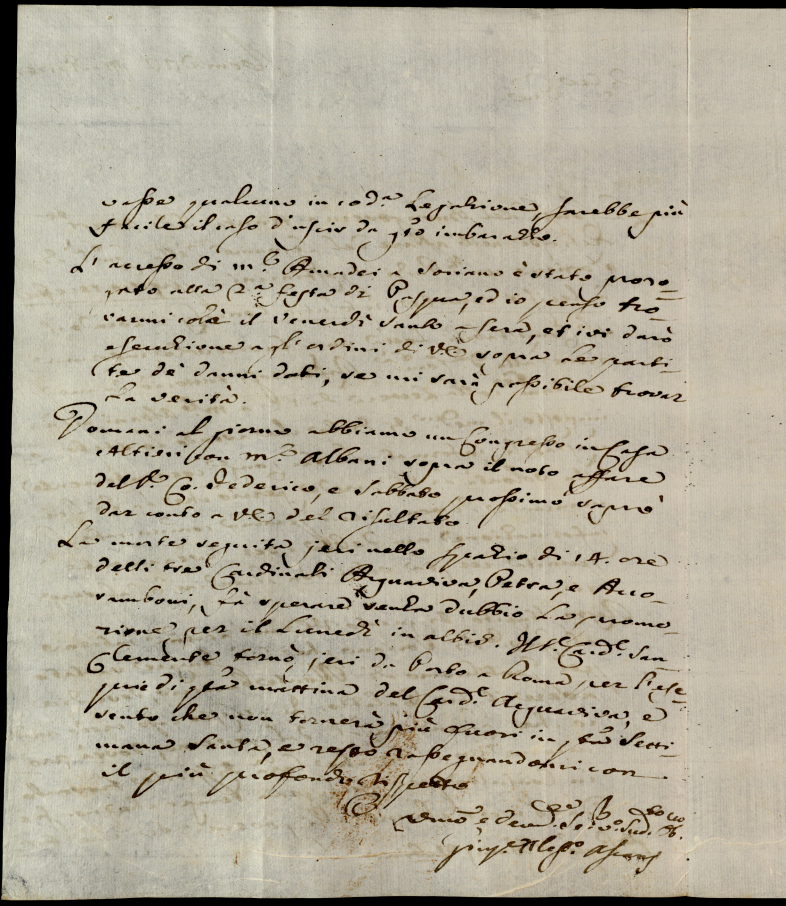 vasse qualcuno in cod.ª Legazione, sarebbe più
facile il caso d'uscir da q.to imbarazzo.
L'accesso di m.r Amadei a Soriano è stato proro-
gato alla 2.ª festa di Pasqua, ed io penso tro-
varmi colà il Venerdì Santo a sera, et ivi darò
esecuzione agl'ordini di V.E. sopra le parti-
te de danni dati, se mi sarà possibile trovar
la verità.
Domani al giorno abbiamo un Congresso in Casa
Altieri con m.r Albani sopra il noto affare
del Co. Federico, e Sabbato prossimo saprò
dar conto a V.E. del risultato.
La morte seguita jeri nello spazio di 14. ore
delli tre Cardinali Acquaviva, Petra, e Acco-
ramboni, fà sperare senza dubbio la promo-
zione per il Lunedì in albis. Il Card.l San
Clemente tornò jeri da Porto a Roma per l'ese-
quie di q.ta mattina del Card.l Acquaviva, e
sento che non tornerà più fuori in q.ta Setti-
mana Santa, e resto rassegnandomi con
il più profondo rispetto